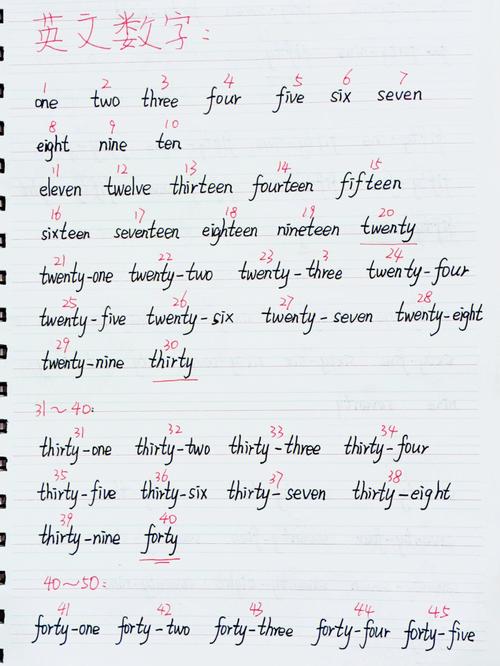 英文数字:
1 2 3 4 5 6 7
one two three four five six seven
8 9 10
eight nine ten
11 12 13 14 15
eleven twelve thirteen fourteen fifteen
16 17 18 19 20
sixteen seventeen eighteen nineteen twenty
21 22 23 3 24
twenty-one twenty-two twenty-three twenty-four
25 26 27 28
twenty-five twenty-six twenty-seven twenty-eight
29 30
twenty-nine thirty
31~40:
31 32 33 34
thirty-one thirty-two thirty-three thirty-four
35 36 37 38
thirty-five thirty-six thirty-seven thirty-eight
39 40
thirty-nine forty
40~50:
41 42 43 44 45
forty-one forty-two forty-three forty-four forty-five